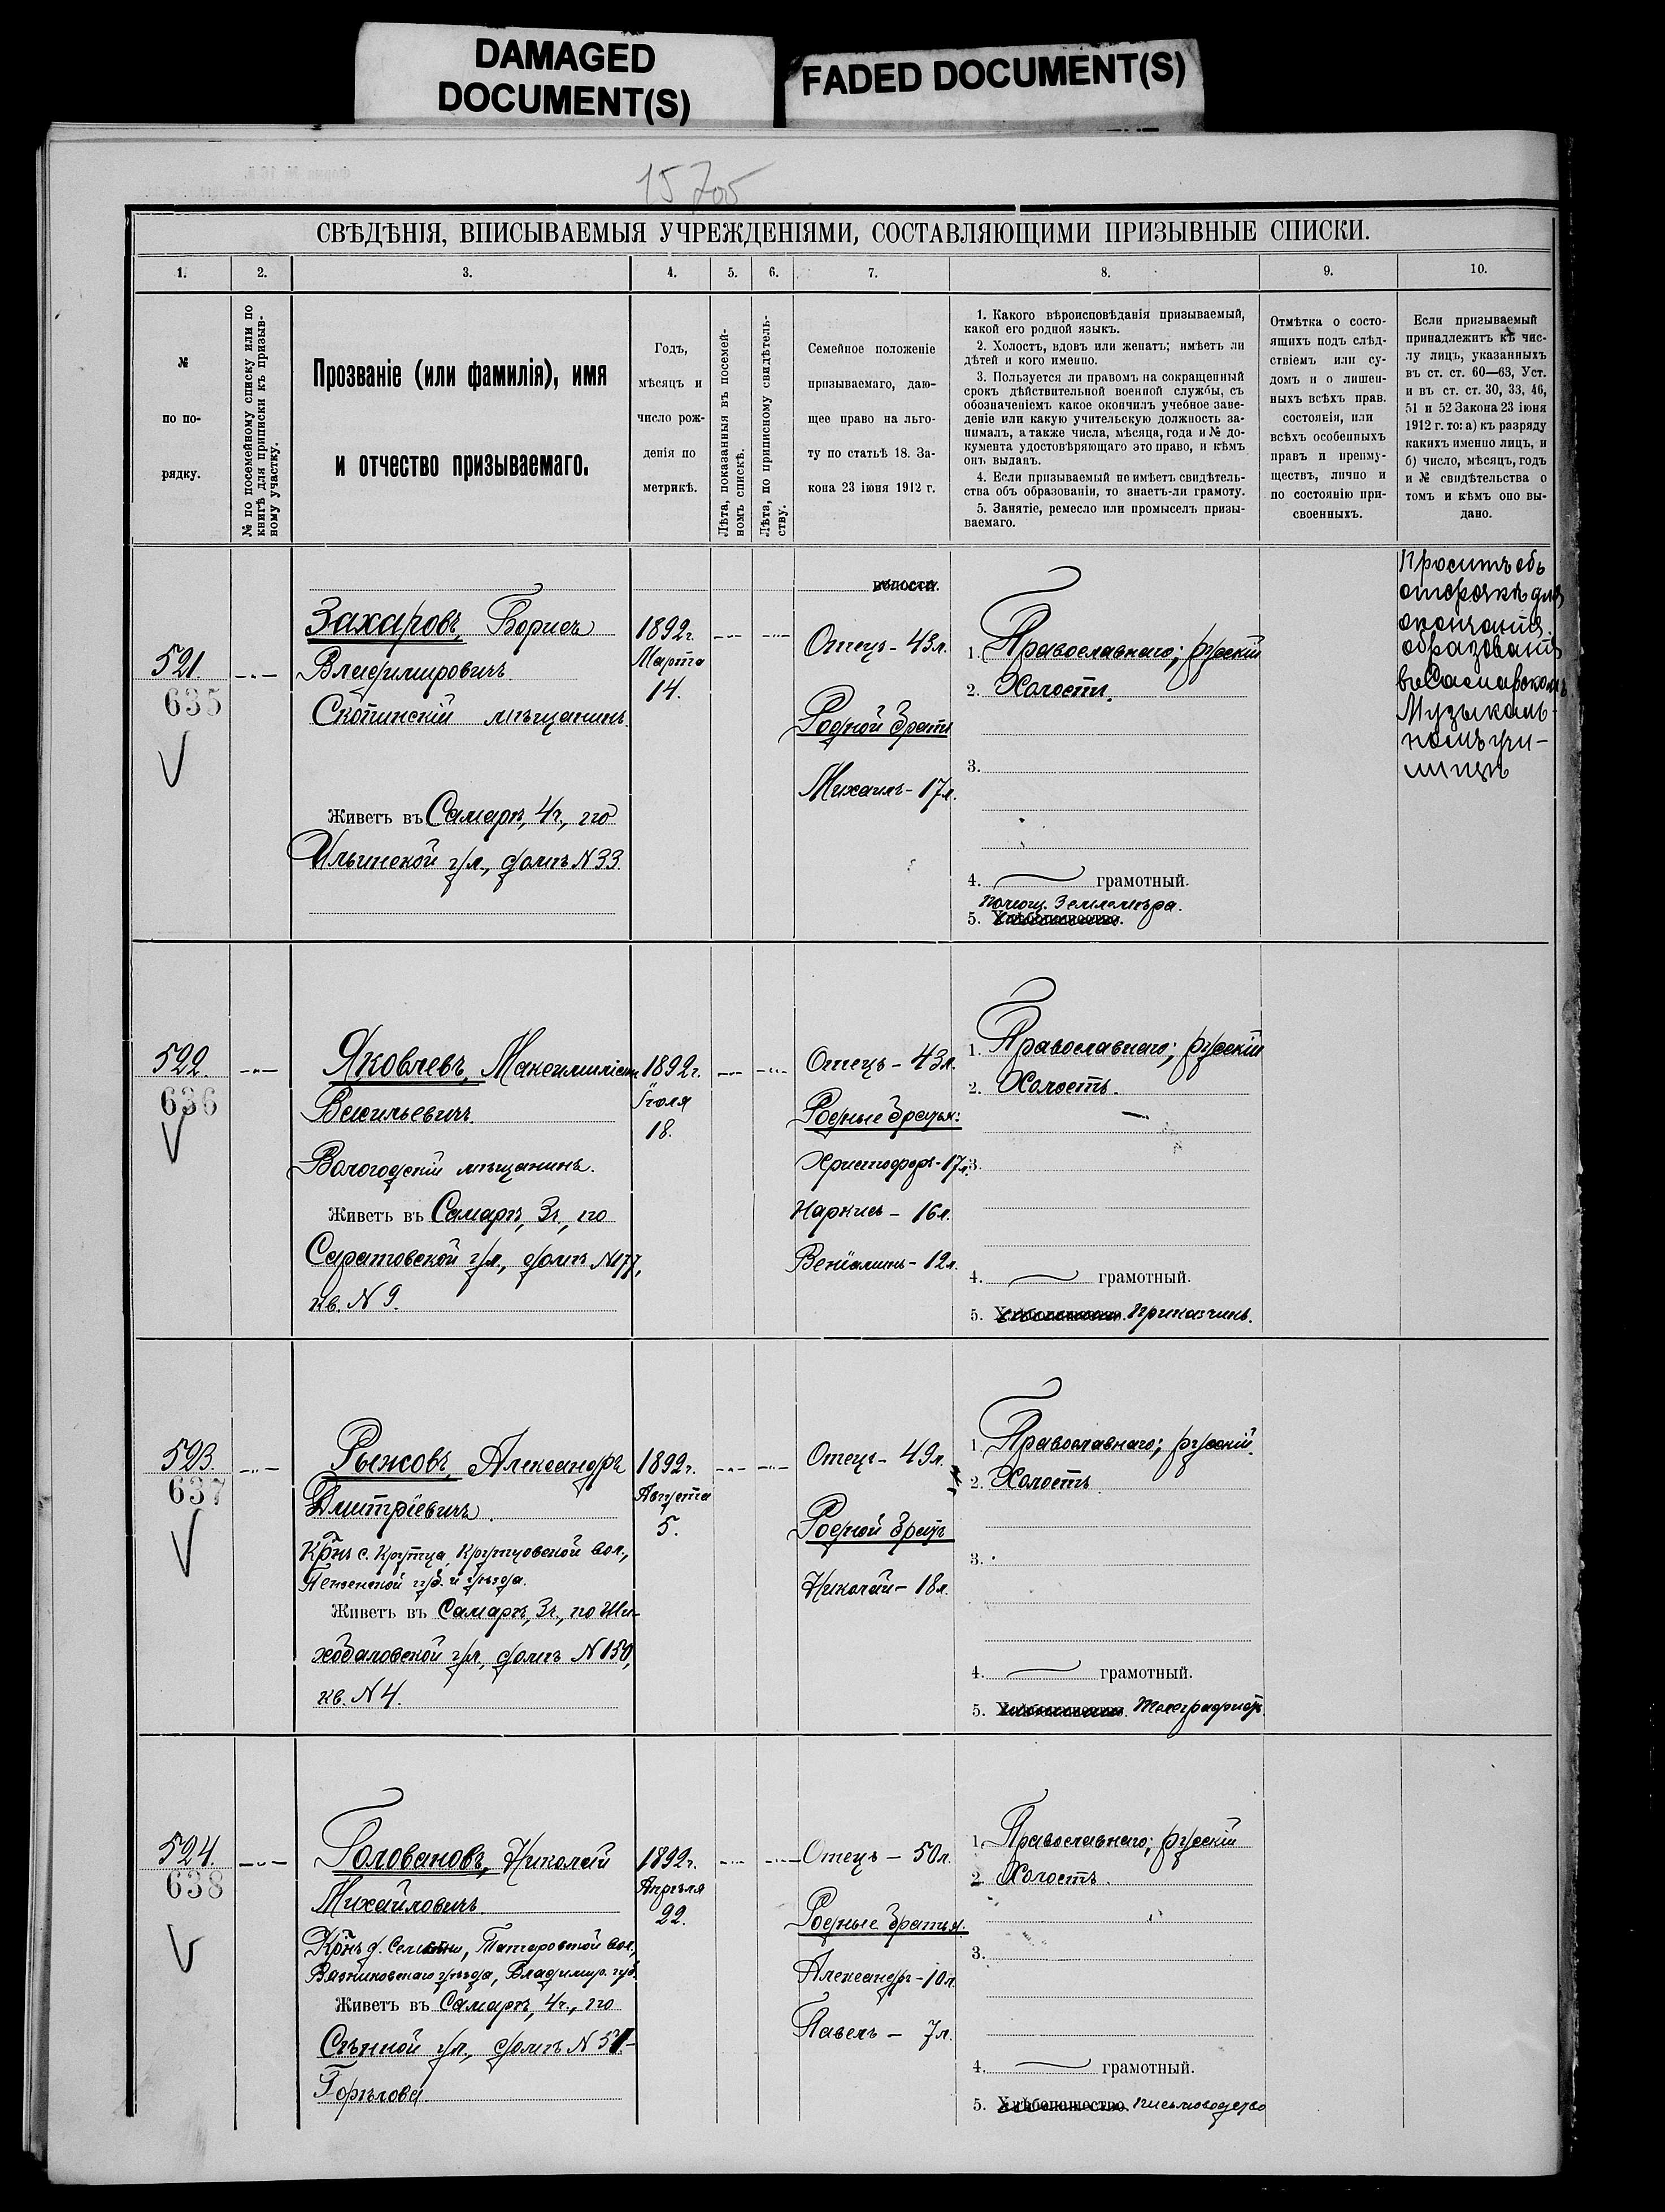 DAMAGED
DOCUMENT(S)
FADED DOCUMENT(S)
15705
СВѢДѢНІЯ, ВПИСЫВАЕМЫЯ УЧРЕЖДЕНІЯМИ, СОСТАВЛЯЮЩИМИ ПРИЗЫВНЫЕ СПИСКИ.
1.
2.
3.
4.
5.
6.
7.
8.
9.
10.
№
по по-
рядку.
№ по посемейному списку или по
книгѣ для приписки къ призыв-
ному участку.
Прозваніе (или фамилія), имя
и отчество призываемаго.
Годъ,
мѣсяцъ и
число рож-
денія по
метрикѣ.
Лѣта, показанныя въ посемей-
номъ спискѣ.
Лѣта, по приписному свидѣтель-
ству.
Семейное положеніе
призываемаго, даю-
щее право на льго-
ту по статьѣ 18. За-
кона 23 іюня 1912 г.
1. Какого вѣроисповѣданія призываемый,
какой его родной языкъ.
2. Холостъ, вдовъ или женатъ; имѣетъ ли
дѣтей и кого именно.
3. Пользуется ли правомъ на сокращенный
срокъ дѣйствительной военной службы, съ
обозначеніемъ какое окончилъ учебное заве-
деніе или какую учительскую должность за-
нималъ, а также числа, мѣсяца, года и № до-
кумента удостовѣряющаго это право, и кѣмъ
онъ выданъ.
4. Если призываемый не имѣетъ свидѣтель-
ства объ образованіи, то знаетъ-ли грамоту.
5. Занятіе, ремесло или промыселъ призы-
ваемаго.
Отмѣтка о состо-
ящихъ подъ слѣд-
ствіемъ или су-
домъ и о лишен-
ныхъ всѣхъ прав.
состоянія, или
всѣхъ особенныхъ
правъ и преиму-
ществъ, лично и
по состоянію при-
своенныхъ.
Если призываемый
принадлежитъ къ чис-
лу лицъ, указанныхъ
въ ст. ст. 60—63, Уст.
и въ ст. ст. 30, 33, 46,
51 и 52 Закона 23 іюня
1912 г. то: а) къ разряду
какихъ именно лицъ, и
б) число, мѣсяцъ, годъ
и № свидѣтельства о
томъ и кѣмъ оно вы-
дано.
521.
635
Захаровъ, Борисъ
Владимировичъ
Скопинскій мѣщанинъ.
Живетъ въ Самарѣ, 4ч., по
Ильинской ул., домъ N 33.
1892г.
Марта
14.
волости.
Отецъ - 43л.
Родной братъ
Михаилъ - 17л.
1. Православнаго; русскій
2. Холостъ.
3.
4. грамотный.
Помощ. Землемѣра.
5. Хлѣбопашество.
Проситъ объ
отсрочкѣ для
окончанія
образованія
въ Самарскомъ
Музыкаль-
номъ учи-
лищѣ
522.
636
Яковлевъ, Максимиліанъ
Васильевичъ.
Вологодскій мѣщанинъ.
Живетъ въ Самарѣ, 3ч., по
Саратовской ул., домъ N 177,
кв. N 9.
1892г.
Іюля
18.
Отецъ - 43л.
Родные братья:
Христофоръ - 17л.
Наркисъ - 16л.
Веніаминъ - 12л.
1. Православнаго; русскій
2. Холостъ.
3.
4. грамотный.
5. Хлѣбопашество. Приказчикъ.
523.
637
Рыжовъ, Александръ
Дмитріевичъ.
Крнъ с. Крутца, Крутцовской вол.,
Пензенской губ. и уѣзда.
Живетъ въ Самарѣ, 3ч., по Ши-
хобаловской ул., домъ N 150,
кв. N 4.
1892г.
Августа
5.
Отецъ - 49л.
Родной братъ
Николай - 18л.
1. Православнаго; русскій.
2. Холостъ
3.
4. грамотный.
5. Хлѣбопашество. Телеграфистъ
524.
638
Головановъ, Николай
Михайловичъ.
Крнъ д. Татаровской вол.,
Вязниковскаго уѣзда, Владимир. губ.
Живетъ въ Самарѣ, 4ч., по
Сѣнной ул., домъ N
Горѣлова.
1892г.
Апрѣля
22.
Отецъ - 50л.
Родные братья:
Александръ - 10л.
Павелъ - 7л.
1. Православнаго; русскій
2. Холостъ.
3.
4. грамотный.
5. Хлѣбопашество. письмоводство